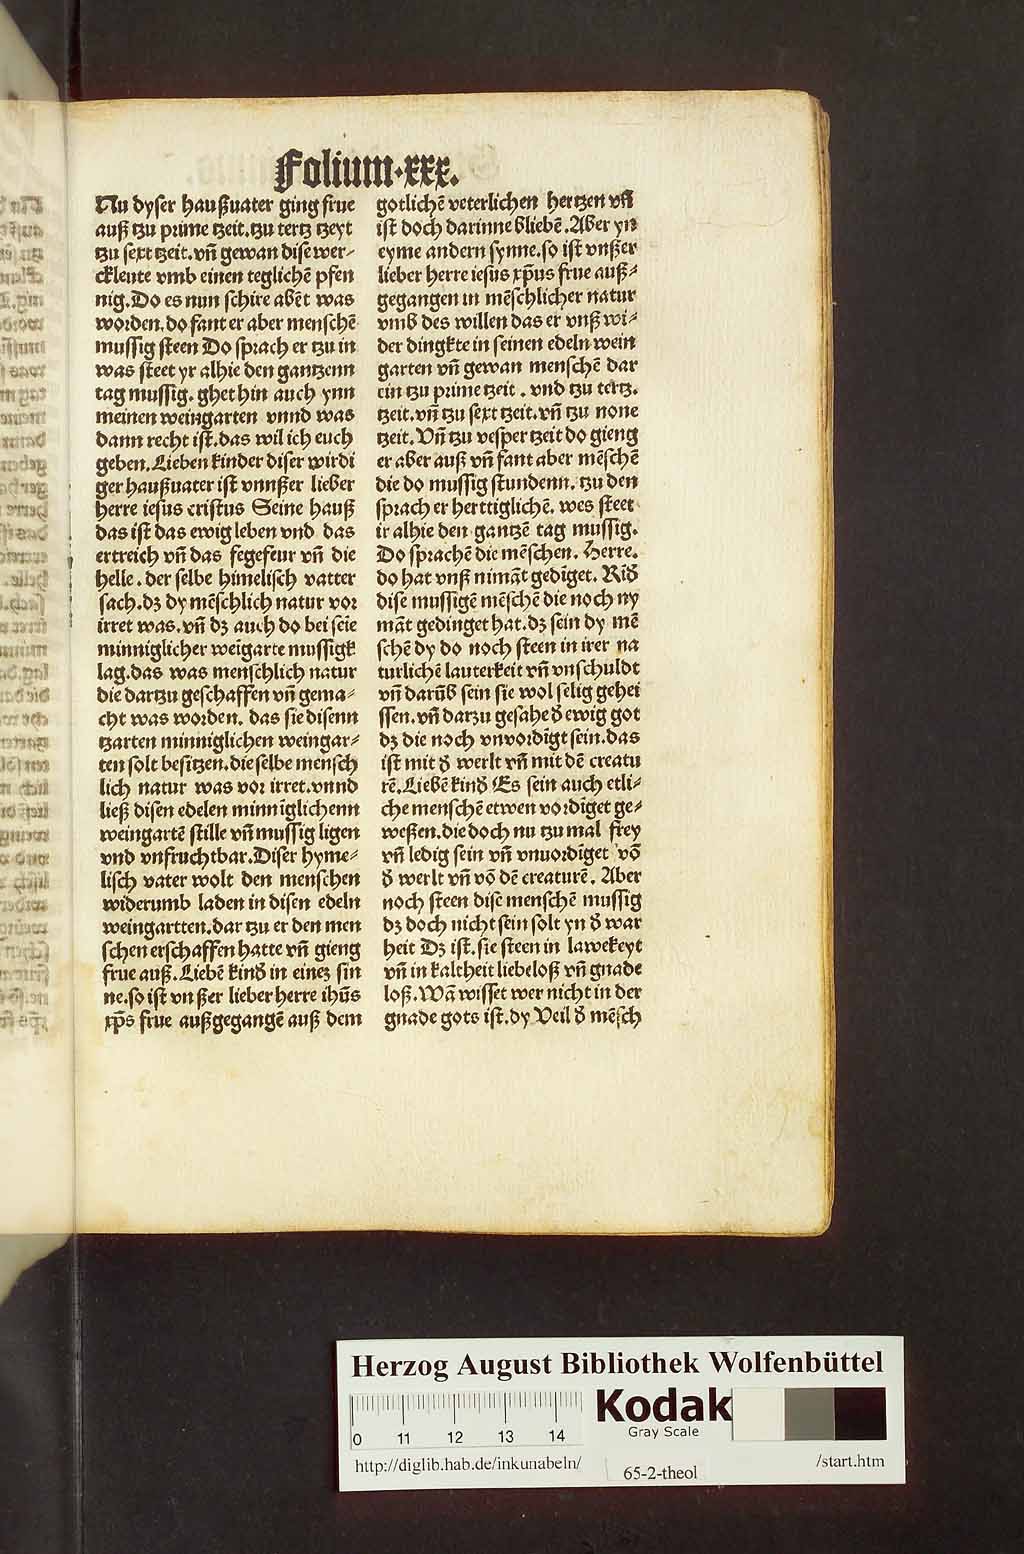 Folium·xxx.
Nu dyser haußuater ging frue
auß tzu prime tzeit. tzu tertz tzeyt
tzu sext tzeit. vn̄ gewan dise wer-
ckleute vmb einen teglichē pfen
nig. Do es nun schire abēt was
worden. do fant er aber menschē
mussig steen Do sprach er tzu in
was steet yr alhie den gantzenn
tag mussig. ghet hin auch ynn
meinen weingarten vnnd was
dann recht ist. das wil ich euch
geben. Lieben kinder diser wirdi
ger haußuater ist vnnßer lieber
herre iesus cristus Seine hauß
das ist das ewig leben vnd das
ertreich vn̄ das fegefeur vn̄ die
helle. der selbe himelisch vatter
sach. dz dy mēschlich natur vor
irret was. vn̄ dz auch do bei seie
minniglicher weīgarte mussigk
lag. das was menschlich natur
die dartzu geschaffen vn̄ gema-
cht was worden. das sie disenn
tzarten minniglichen weingar-
ten solt besitzen. die selbe mensch
lich natur was vor irret. vnnd
ließ disen edelen minnīglichenn
weingartē stille vn̄ mussig ligen
vnd vnfruchtbar. Diser hyme-
lisch vater wolt den menschen
widerumb laden in disen edeln
weingartten. dar tzu er den men
schen erschaffen hatte vn̄ gieng
frue auß. Liebē kinđ in einez sin
ne. so ist vnßer lieber herre ihūs
xp̄s frue außgegangē auß dem
gotlichē veterlichen hertzen vn̄
ist doch darinne bliebē. Aber yn
eyme andern synne. so ist vnßer
lieber herre iesus xp̄us frue auß-
gegangen in mēschlicher natur
vmb des willen das er vnß wi-
der dingkte in seinen edeln wein
garten vn̄ gewan menschē dar
ein tzu prime tzeit. vnd tzu tertz.
tzeit. vn̄ tzu sext tzeit. vn̄ tzu none
tzeit. Vn̄ tzu vesper tzeit do gieng
er aber auß vn̄ fant aber mēschē
die do mussig stundenn. tzu den
sprach er herttiglichē. wes steet
ir alhie den gantzē tag mussig.
Do sprachē die mēschen. Herre.
do hat vnß nimāt gedīget. Kīđ
dise mussigē mēschē die noch ny
māt gedinget hat. dz sein dy mē
schē dy do noch steen in irer na
turlichē lauterkeit vn̄ vnschuldt
vn̄ darūb sein sie wol selig gehei
ssen. vn̄ darzu gesahe đ ewig got
dz die noch vnvordīgt sein. das
ist mit đ werlt vn̄ mit dē creatu
rē. Liebē kinđ Es sein auch etli-
che menschē etwen vordīget ge-
weßen. die doch nu tzu mal frey
vn̄ ledig sein vn̄ vnuordīget vō
đ werlt vn̄ vō dē creaturē. Aber
noch steen dise menschē mussig
dz doch nicht sein solt yn đ war
heit Dz ist. sie steen in lawekeyt
vn̄ in kaltheit liebeloß vn̄ gnade
loß. Wā wisset wer nicht in der
gnade gots ist. dy Veil đ mēsch
Herzog August Bibliothek Wolfenbüttel
0 11 12 13 14
Kodak
Gray Scale
http://diglib.hab.de/inkunabeln/
65-2-theol
/start.htm